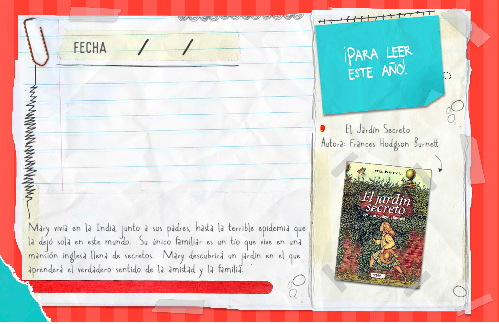 FECHA / /
¡PARA LEER
ESTE AÑO!
El Jardín Secreto
Autora: Frances Hodgson Burnett
El jardín
secreto
Mary vivía en la India, junto a sus padres, hasta la terrible epidemia que
la dejó sola en este mundo. Su único familiar es un tío que vive en una
mansión inglesa llena de secretos. Mary descubrirá un jardín en el que
aprenderá el verdadero sentido de la amistad y la familia.